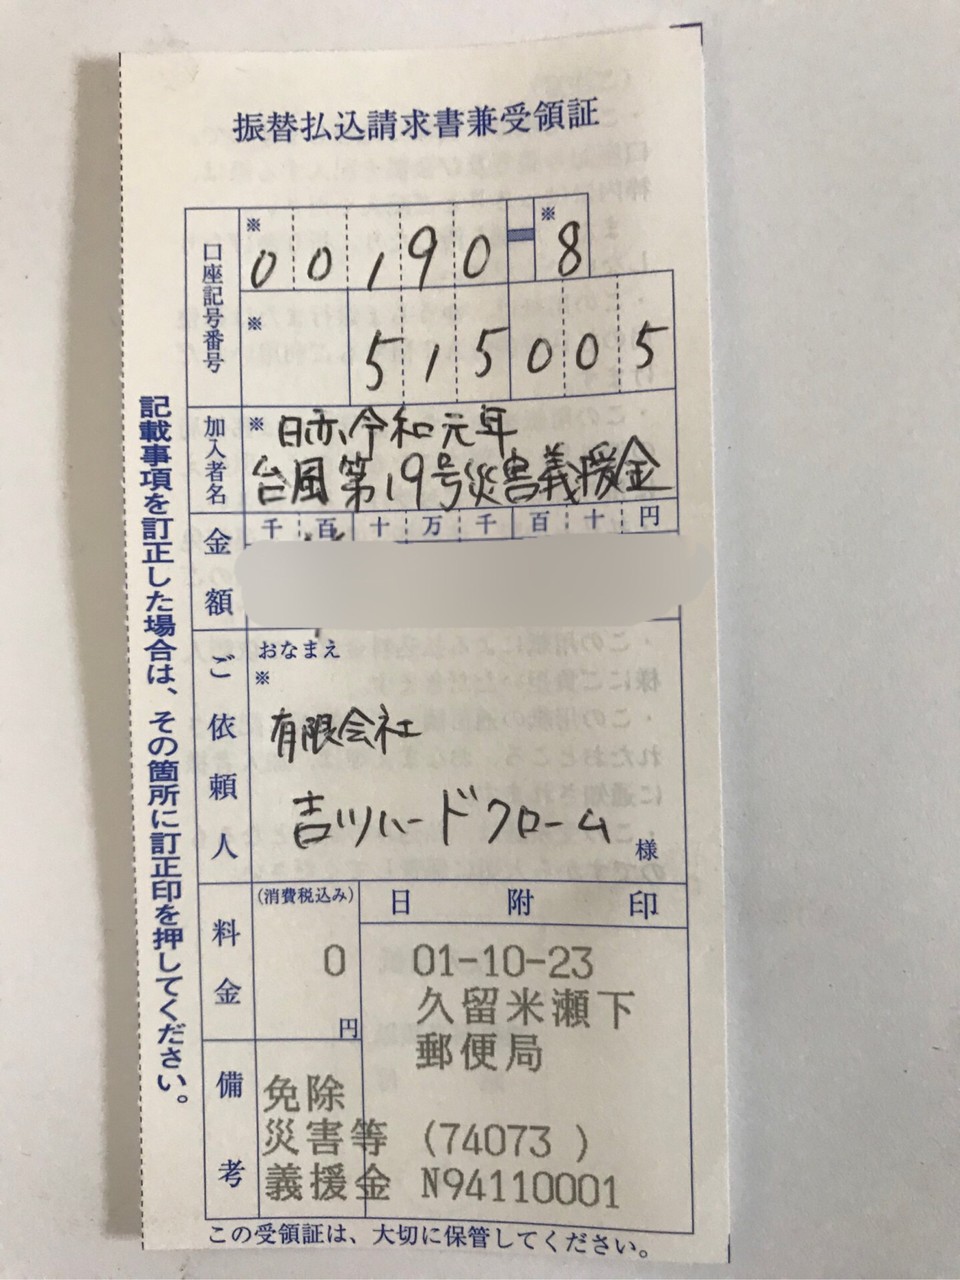 振替払込請求書兼受領証
口座記号番号
※ 00190-8 ※
※ 515005
加入者名
※ 日赤令和元年
台風第19号災害義援金
金額
千百十万千百十円
ご依頼人
おなまえ
※
有限会社
吉川ハードクローム
様
料金
(消費税込み)
0
円
日附印
01-10-23
久留米瀬下
郵便局
備考
免除
災害等 (74073 )
義援金 N94110001
この受領証は、大切に保管してください。
記載事項を訂正した場合は、その箇所に訂正印を押してください。